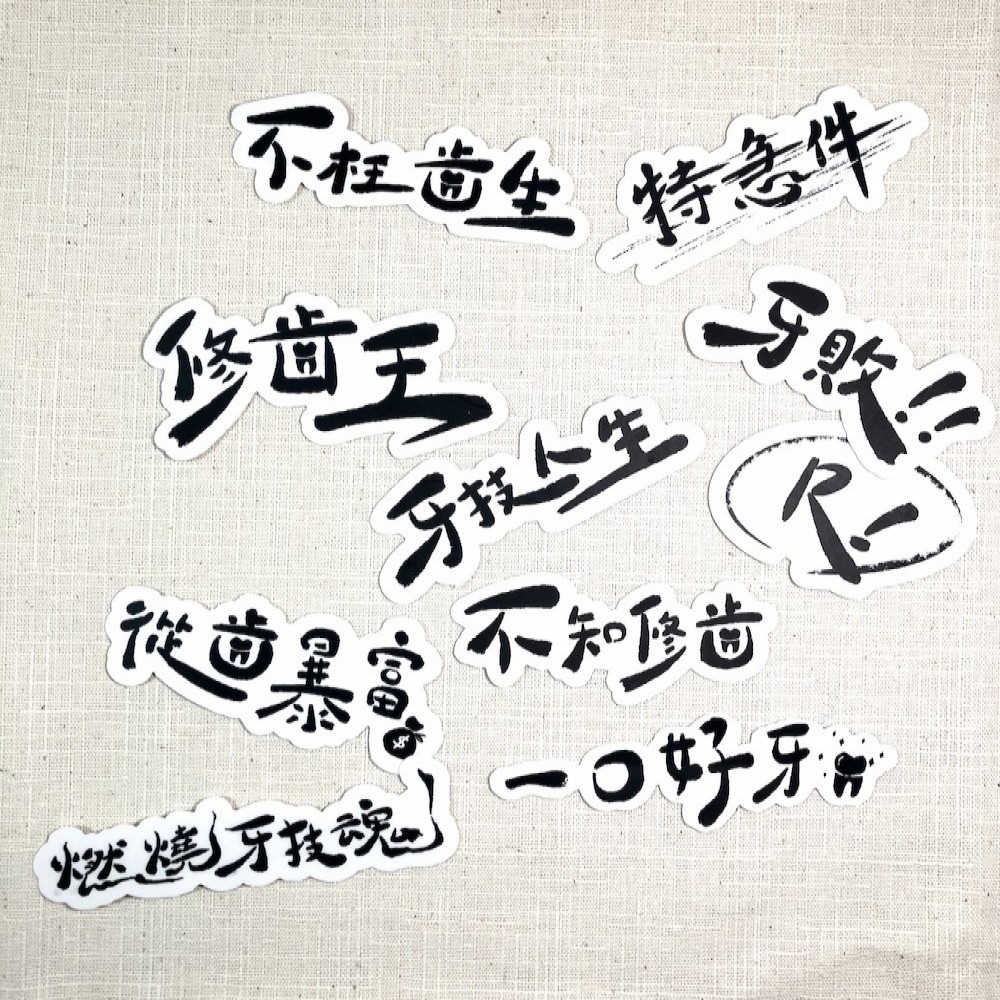 不枉齒生
特急件
修齒王
牙敗!!
牙技人生
尺!
從齒暴富
不知修齒
一口好牙
燃燒牙技魂